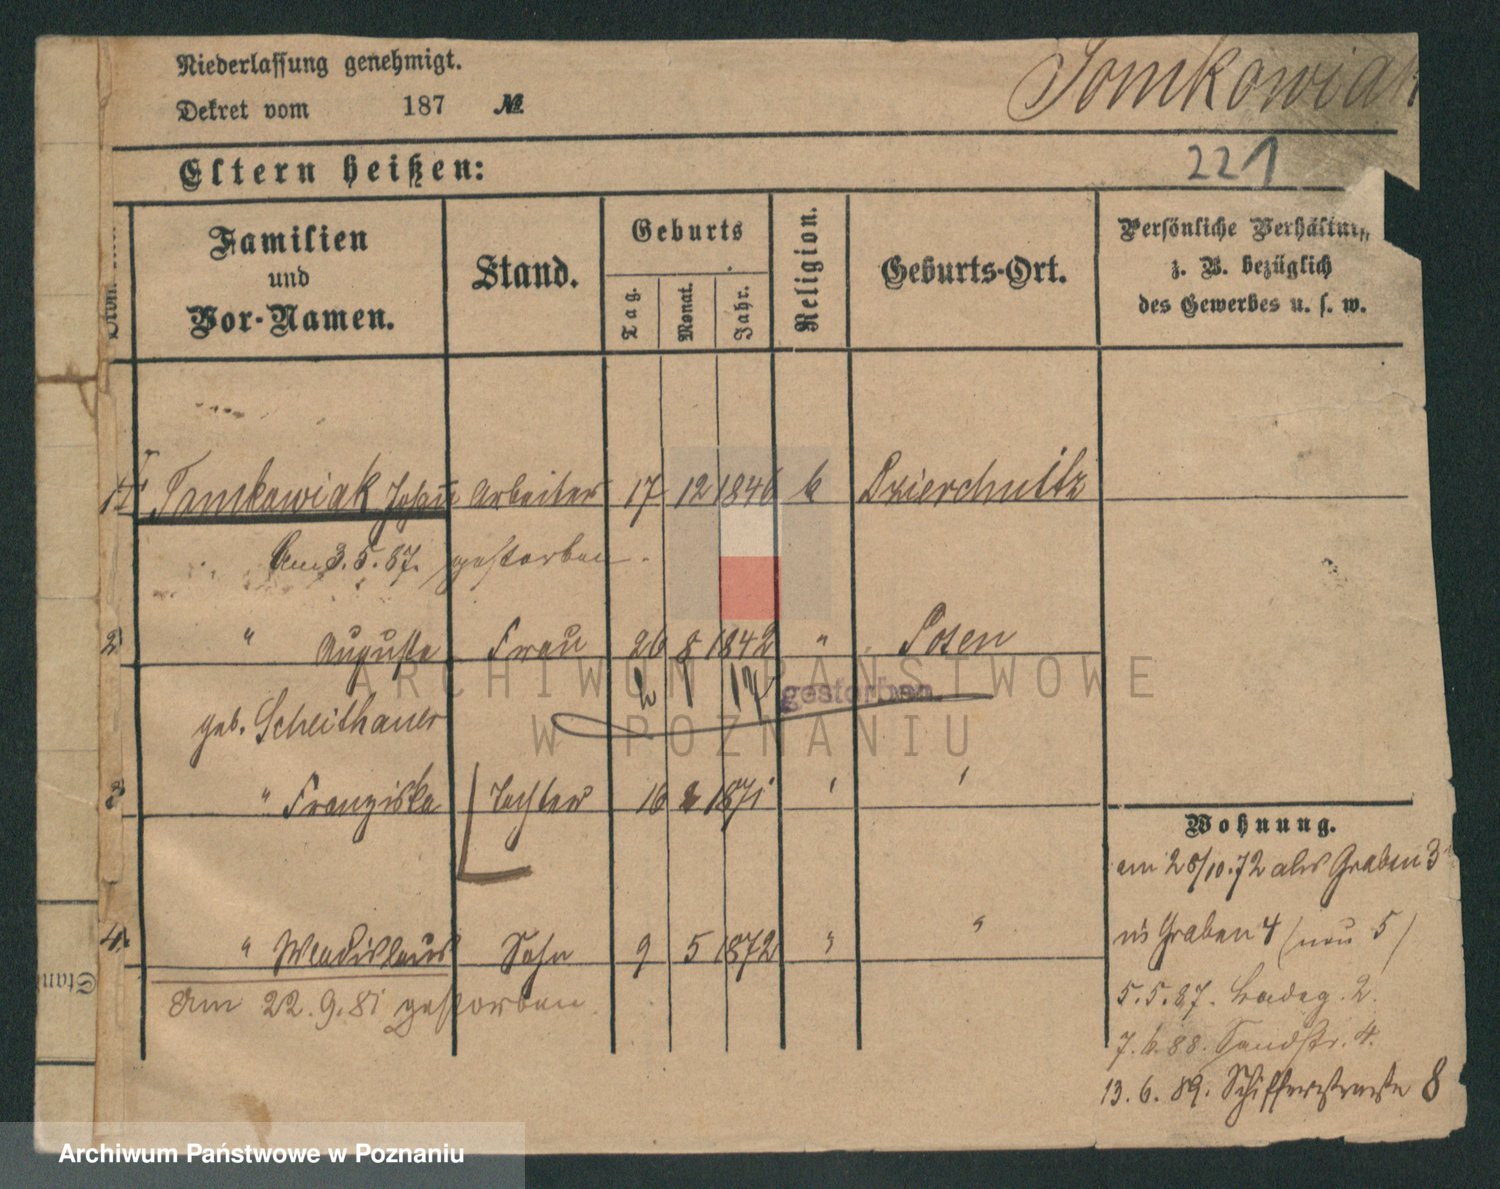 Niederlassung genehmigt.
Tomkowiak
Dekret vom 187 №
Eltern heißen:
221
Familien und Vor-Namen.
Stand.
Geburts
Tag.
Monat.
Jahr.
Religion.
Geburts-Ort.
Persönliche Verhältniss
z. B. bezüglich
des Gewerbes u. s. w.
1 Tomkowiak Johann Arbeiter 17 12 1846 k Dzierchnitz
Am 3.5.87. gestorben.
2 " Auguste Frau 26 8 1842 " Posen
2 1 17 gestorben
geb. Scheithauer
3 " Franziska Tochter 16 2 1871 " "
Wohnung.
am 28/10.72 als Graben 3
4. " Wladislaus Sohn 9 5 1872 " "
Graben 4 (neu 5)
Am 22.9.81 gestorben.
5.5.87. Badeg. 2.
7.6.88. Sandstr. 4.
13.6.89. Schifferstraße 8
Stand
ARCHIWUM PAŃSTWOWE
W POZNANIU
Archiwum Państwowe w Poznaniu